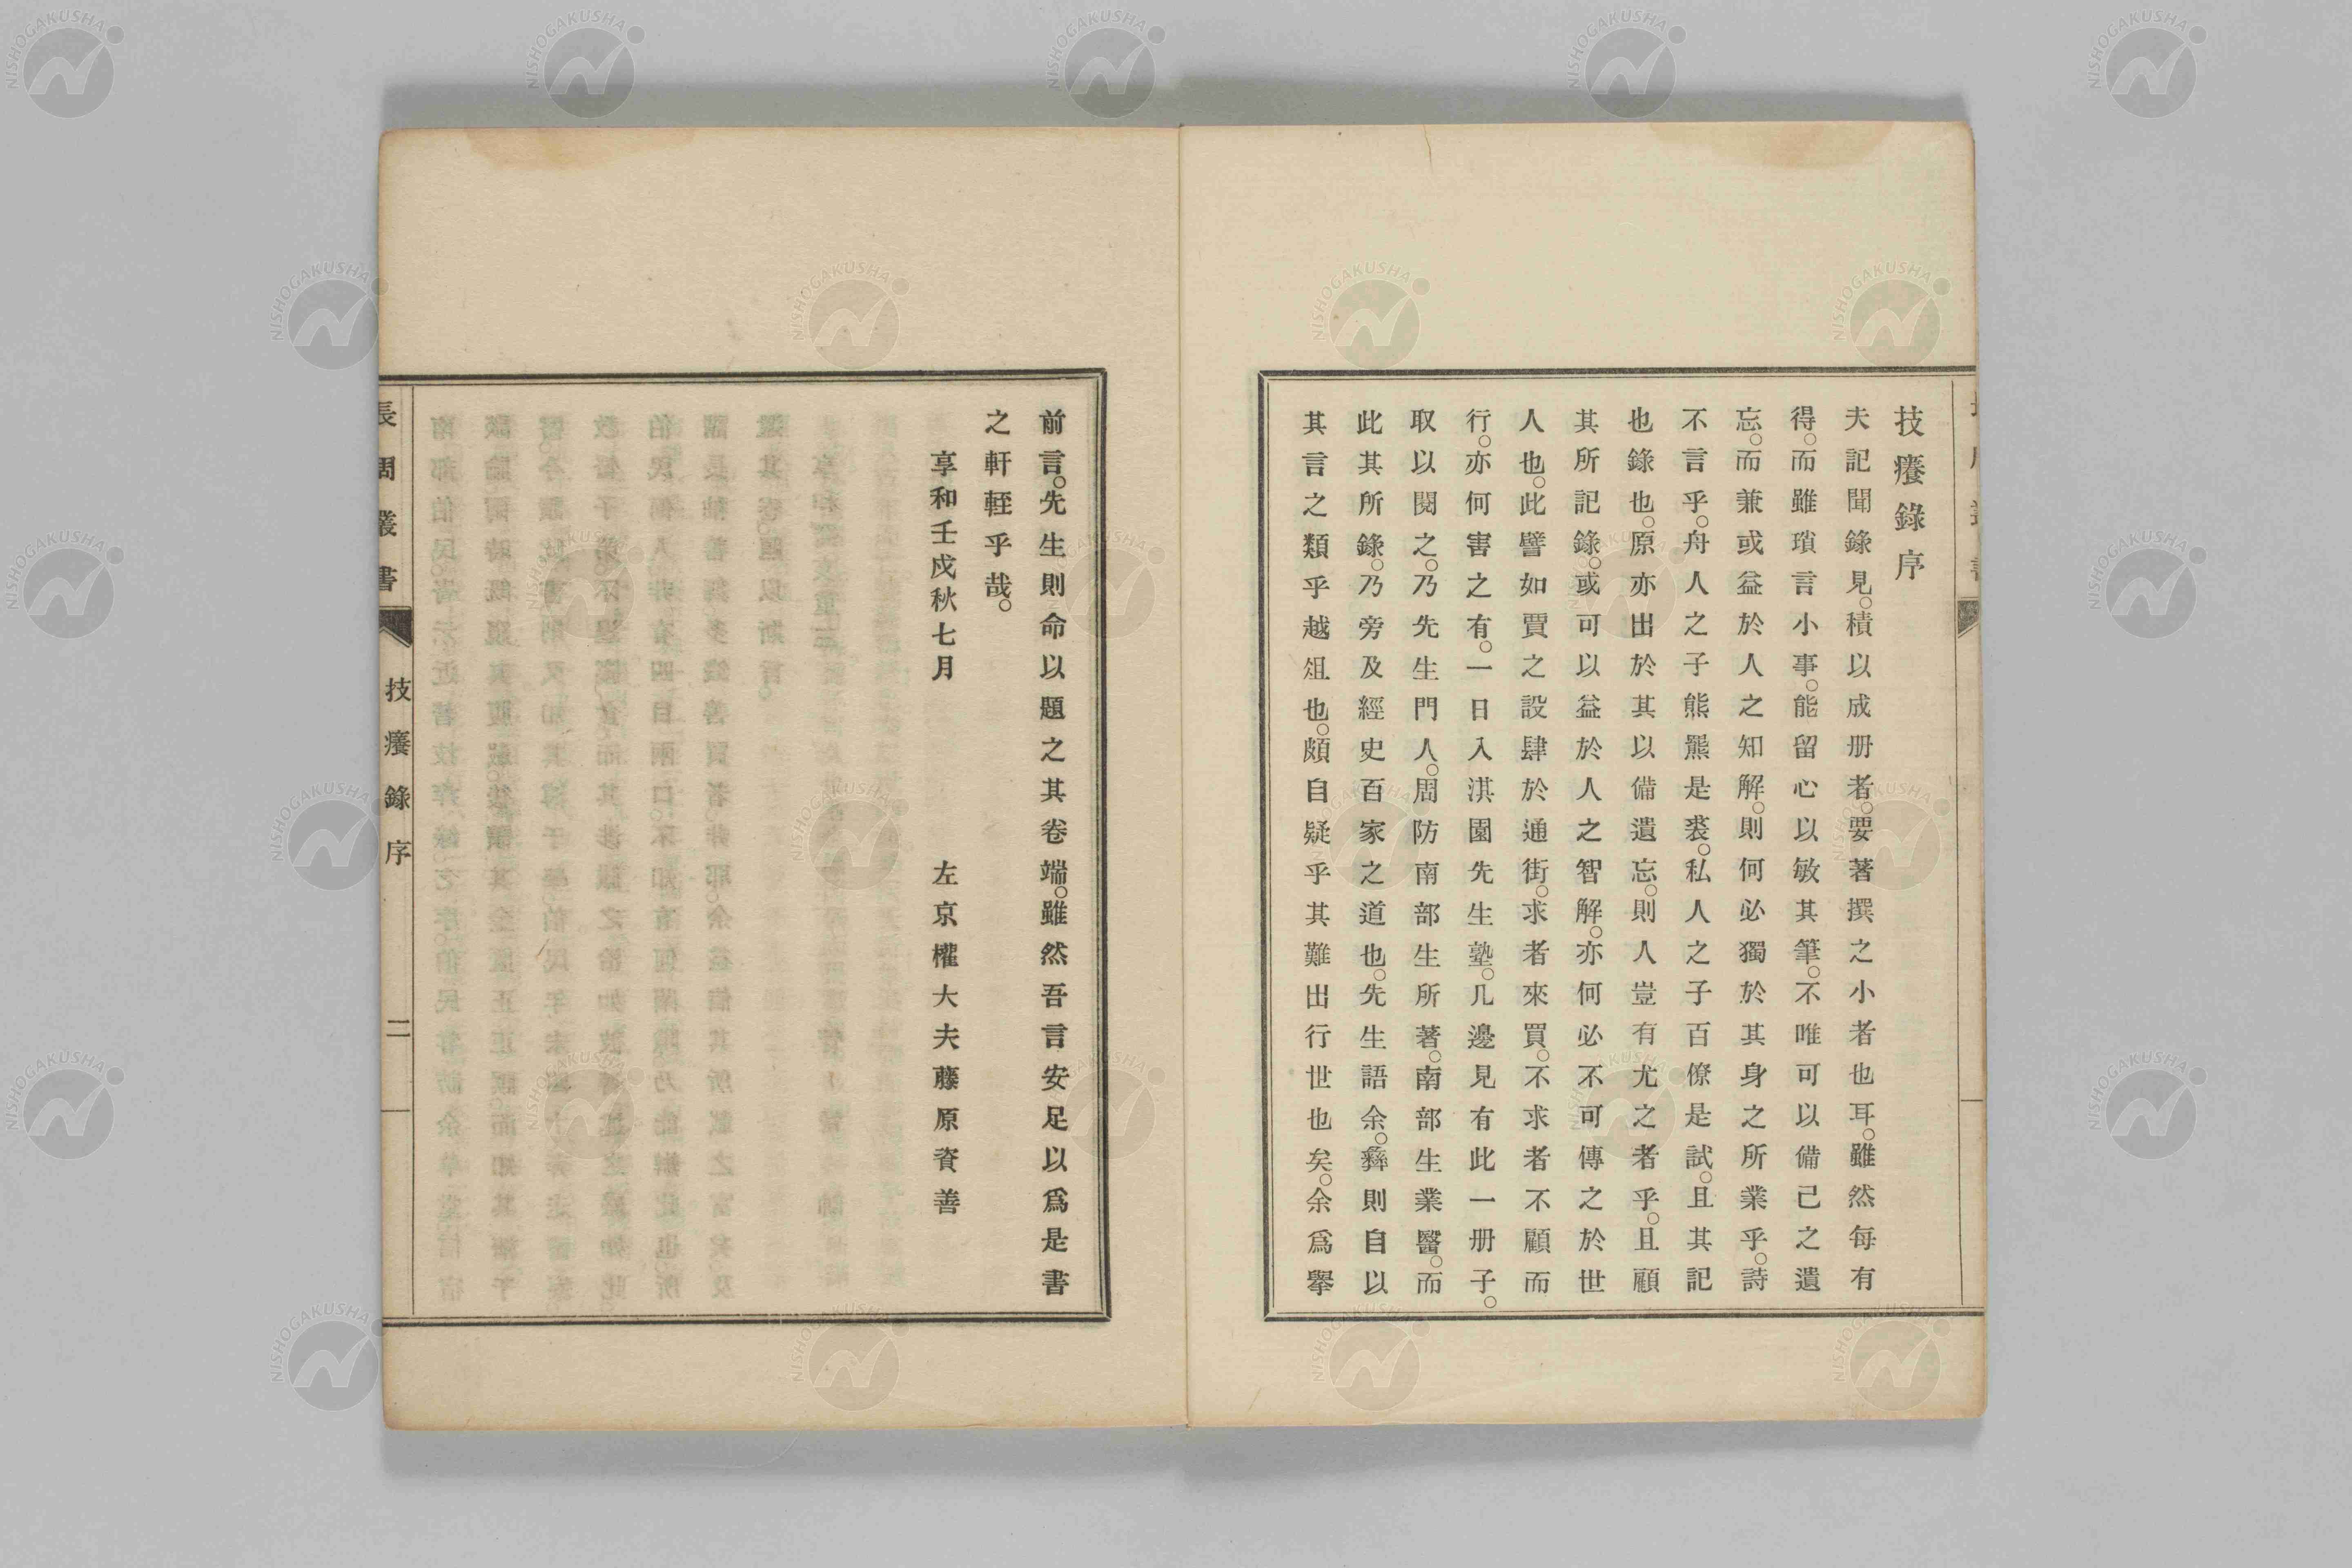 技癢錄序
夫記聞錄見。積以成册者。要著撰之小者也耳。雖然每有
得。而雖瑣言小事。能留心以敏其筆。不唯可以備己之遺
忘。而兼或益於人之知解。則何必獨於其身之所業乎。詩
不言乎。舟人之子熊羆是裘。私人之子百僚是試。且其記
也錄也。原亦出於其以備遺忘。則人豈有尤之者乎。且顧
其所記錄。或可以益於人之智解。亦何必不可傳之於世
人也。此譬如賈之設肆於通街。求者來買。不求者不顧而
行。亦何害之有。一日入淇園先生塾。几邊見有此一册子。
取以閱之。乃先生門人。周防南部生所著。南部生業醫。而
此其所錄。乃旁及經史百家之道也。先生語余。彝則自以
其言之類乎越俎也。頗自疑乎其難出行世也矣。余爲擧
前言。先生則命以題之其卷端。雖然吾言安足以爲是書
之軒輊乎哉。
享和壬戌秋七月 左京權大夫藤原資善
長周叢書 技癢錄序 二
NISHOGAKUSHA